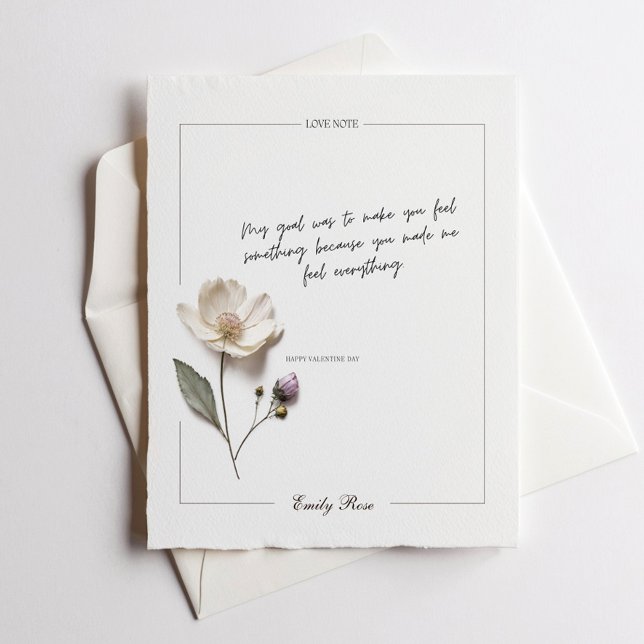 LOVE NOTE
My goal was to make you feel
something because you made me
feel everything.
HAPPY VALENTINE DAY
Emily Rose